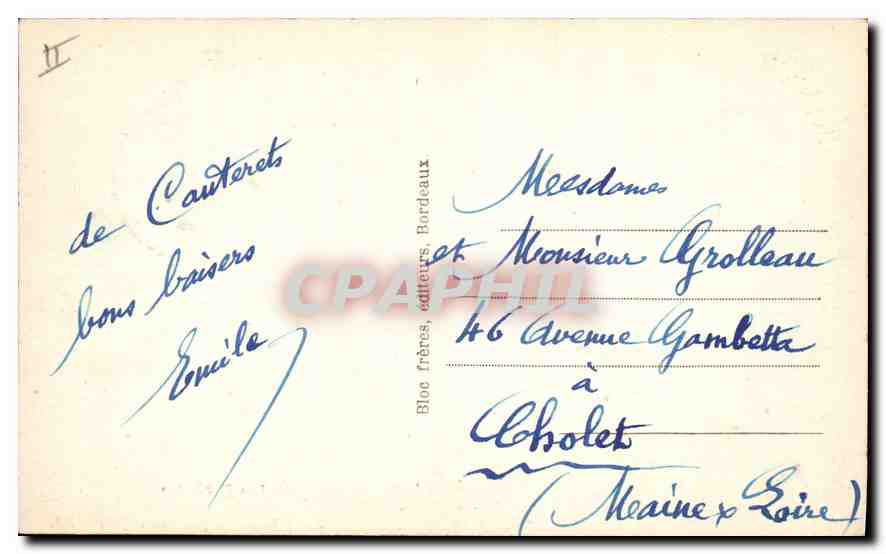 II
de Cauterets
bons baisers
Emile
Bloc frères, éditeurs, Bordeaux
CPAPHIL
Mesdames
et Monsieur Grolleau
46 Avenue Gambetta
à
Cholet
(Maine x Loire)